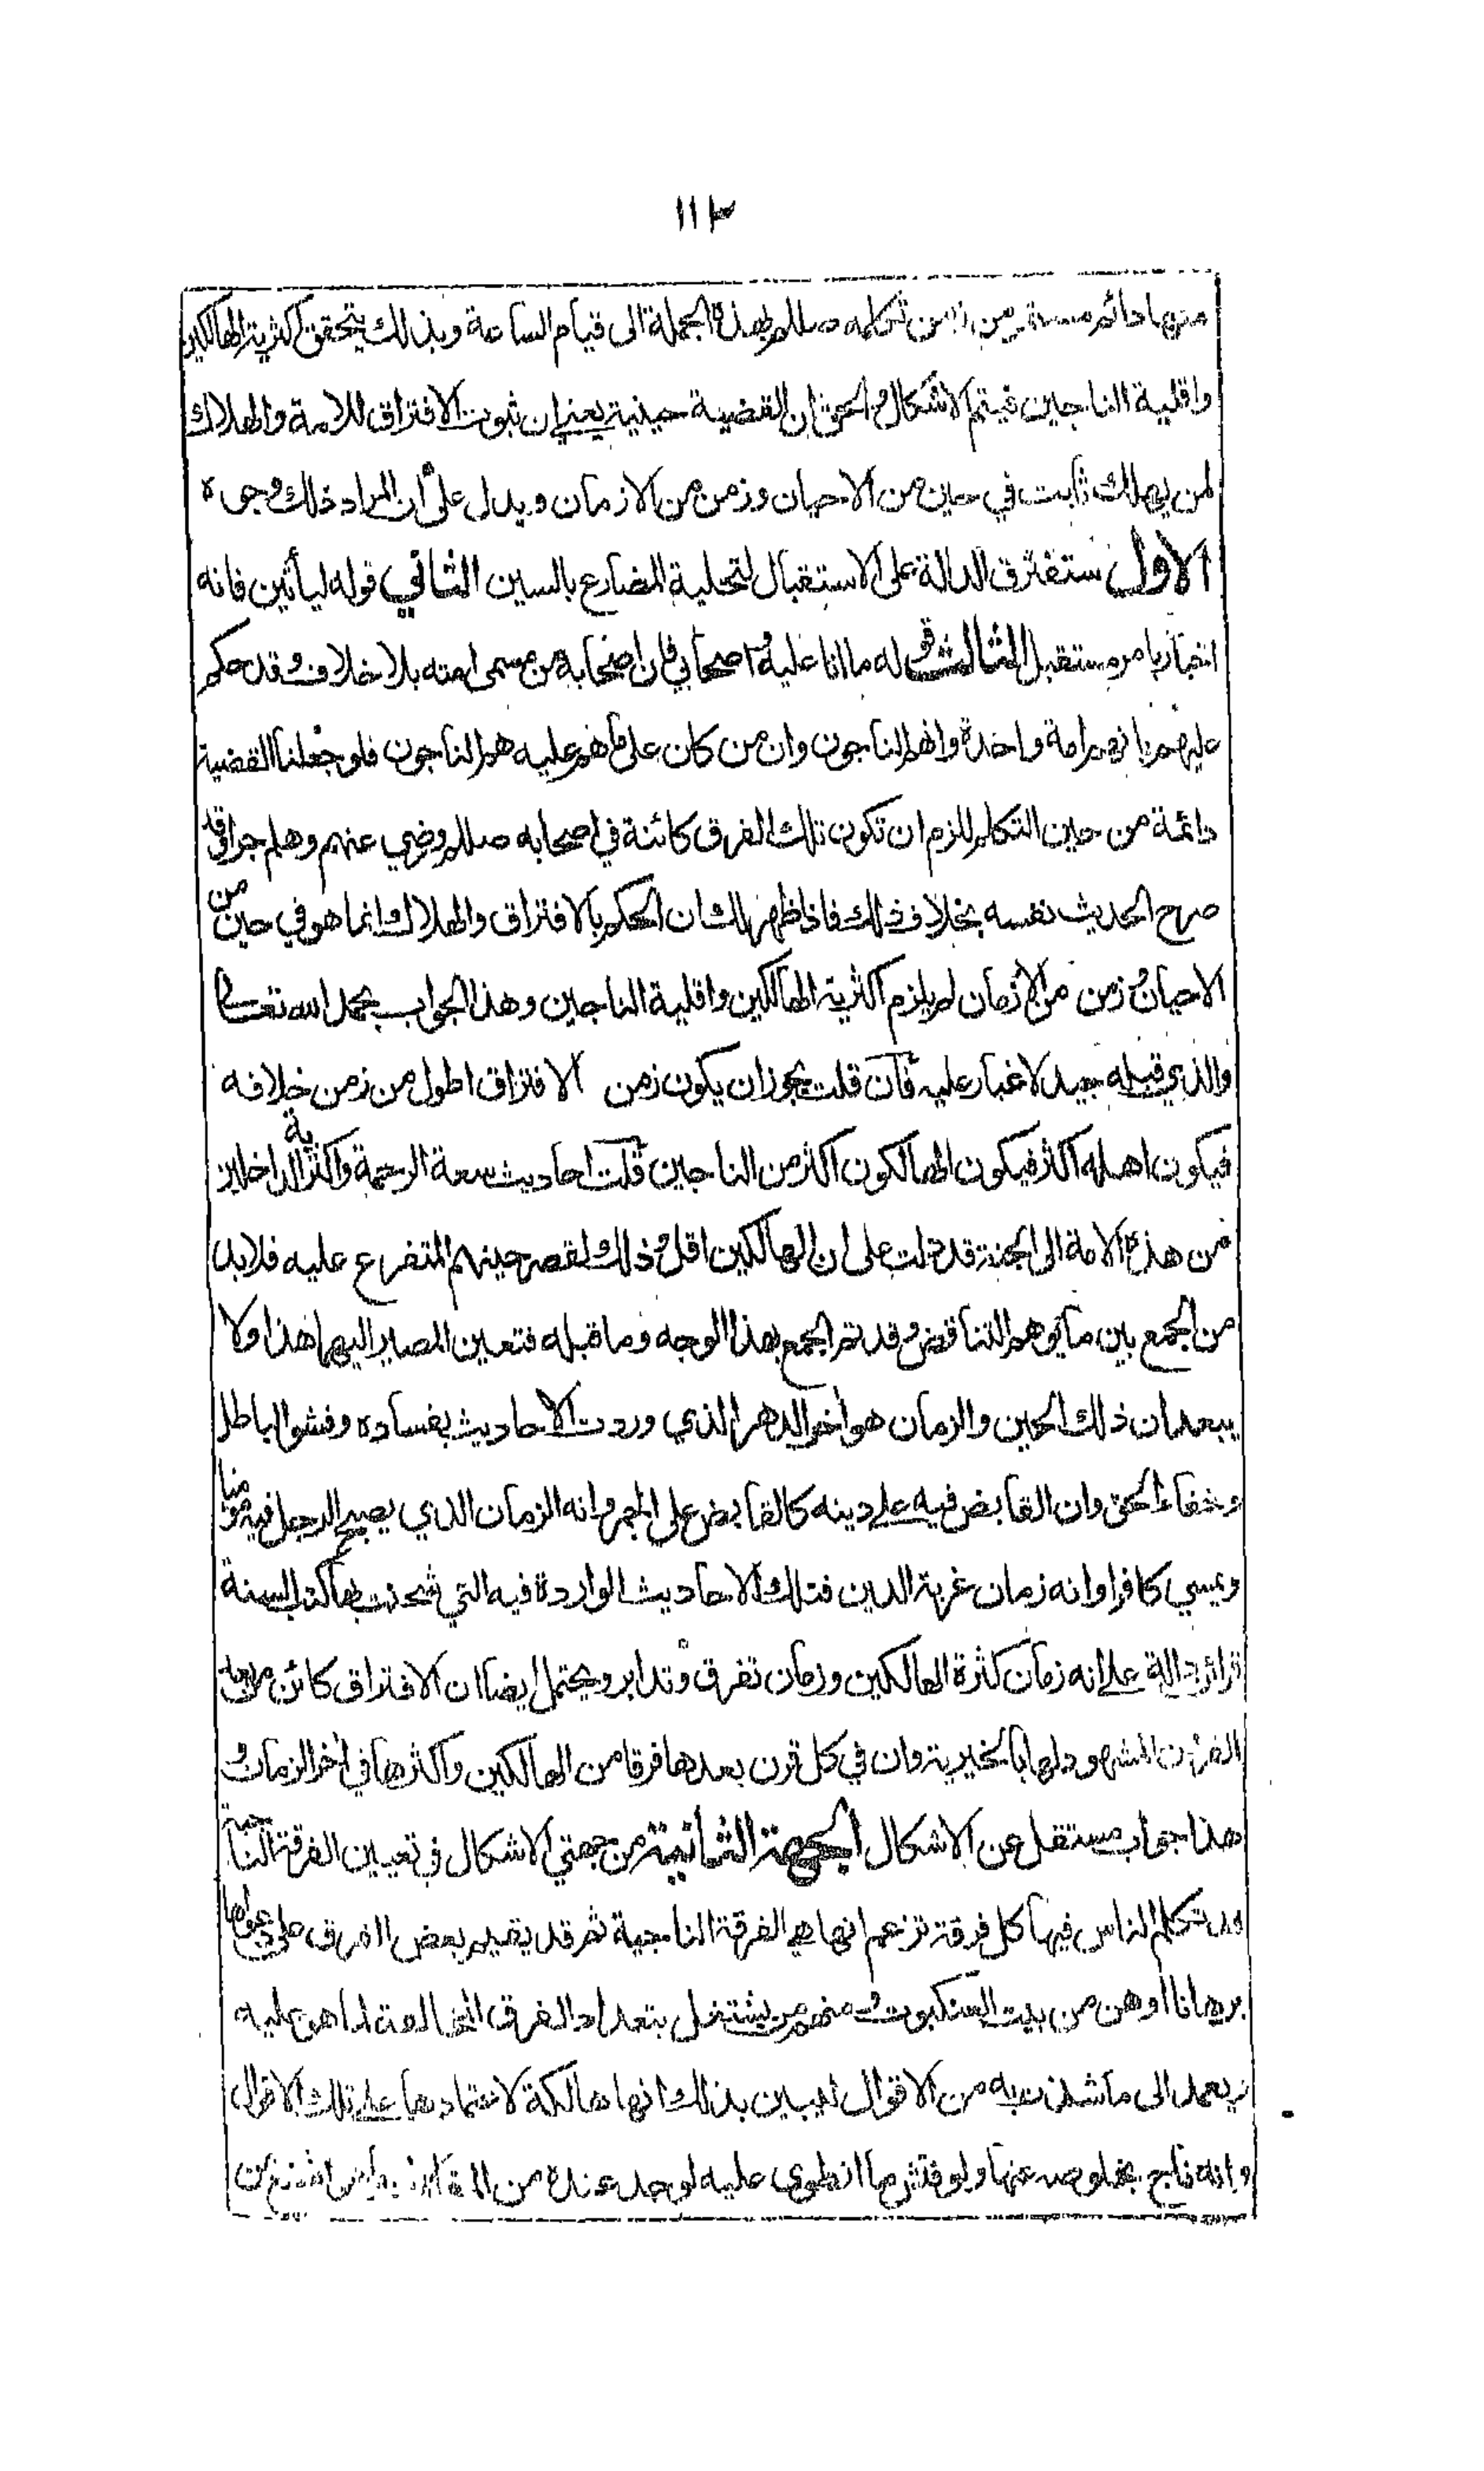 ١١٣
منها دائم مستمر من زمن تكلمه صللم بهذه الجملة الى قيام الساعة وبذلك يتحقق اكثرية الهالكين
واقلية الناجين فيتم الاشكال والحق ان القضية حينية يعني ان ثبوت الافتراق للامة والهلاك
لمن يهلك ثابت في حين من الاحيان وزمن من الازمان ويدل على ان المراد ذلك وجوه
الاول ستفترق الدالة على الاستقبال لتحلية المضارع بالسين الثاني قوله ليأتين فانه
اخبار بامر مستقبل الثالث قوله ما انا عليه واصحابي فان اصحابه من مسمى امته بلا خلاف وقد حكم
عليهم بانهم امة واحدة وانهم الناجون وان من كان على ما هم عليه هم الناجون فلو جعلنا القضية
دائمة من حين التكلم للزم ان تكون تلك الفرق كائنة في اصحابه صللم ورضي عنهم وهلم جرا وقد
صرح الحديث نفسه بخلاف ذلك فاذا ظهر لك ان الحكم بالافتراق والهلاك انما هو في حين من
الاحيان وزمن من الازمان لم يلزم اكثرية الهالكين واقلية الناجين وهذا الجواب بحمد الله تعالى
والذي قبله جيد لا غبار عليه فان قلت يجوز ان يكون زمن الافتراق اطول من زمن خلافه
فيكون اهله اكثر فيكون الهالكون اكثر من الناجين قلت احاديث سعة الرحمة واكثرية الداخلين
من هذه الامة الى الجنة قد دلت على ان الهالكين اقل وذلك لقصر حينهم المتفرع عليه فلا بد
من الجمع بين ما يوهم التناقض وقد تم الجمع بهذا الوجه وما قبله فتعين المصير اليهما هذا ولا
يبعد ان ذلك الحين والزمان هو اخر الدهر الذي وردت الاحاديث بفساده وفشو الباطل
وخفاء الحق وان القابض فيه على دينه كالقابض على الجمر وانه الزمان الذي يصبح الرجل فيه مؤمنا
ويمسي كافرا وانه زمان غربة الدين فتلك الاحاديث الواردة فيه التي شحنت بها كتب السنة
قرائن دالة على انه زمان كثرة الهالكين وزمان تفرق وتدابر ويحتمل ايضا ان الافتراق كائن من بعد
القرون المشهود لها بالخيرية وان في كل قرن بعدها فرقا من الهالكين واكثرها في اخر الزمان و
هذا جواب مستقل عن الاشكال الجهة الثانية من جهتي الاشكال في تعيين الفرقة الناجية
قد تكلم الناس فيها كل فرقة تزعم انها هي الفرقة الناجية ثم قد يقيم بعض الفرق على دعواها
برهانا اوهن من بيت العنكبوت ومنهم من يشتغل بتعداد الفرق المخالفة لما هو عليه
ويعمد الى ما شذت به من الاقوال ليبين بذلك انها هالكة لاعتمادها على تلك الاقوال
وانه ناج بخلوصه عنها ولو فتش ما انطوى عليه لوجد عنده من